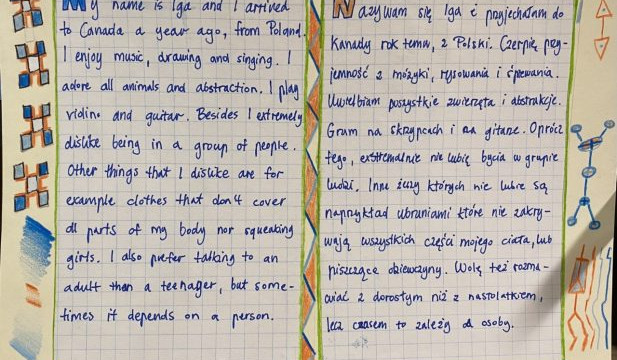 My name is Iga and I arrived
to Canada a year ago, from Poland.
I enjoy music, drawing and singing. I
adore all animals and abstraction. I play
violino and guitar. Besides I extremely
dislike being in a group of people.
Other things that I dislike are for
example clothes that don't cover
all parts of my body nor squeaking
girls. I also prefer talking to an
adult than a teenager, but some-
times it depends on a person.
Nazywam się Iga i przyjechałam do
Kanady rok temu, z Polski. Czerpię przy-
jemność z muzyki, rysowania i śpiewania.
Uwielbiam wszystkie zwierzęta i abstrakcje.
Gram na skrzypcach i na gitarze. Oprócz
tego, ekstremalnie nie lubię bycia w grupie
ludzi. Inne rzeczy których nie lubię są
naprzykład ubraniami które nie zakry-
wają wszystkich części mojego ciała, lub
piszczące dziewczyny. Wolę też rozma-
wiać z dorosłym niż z nastolatkiem,
lecz czasem to zależy od osoby.